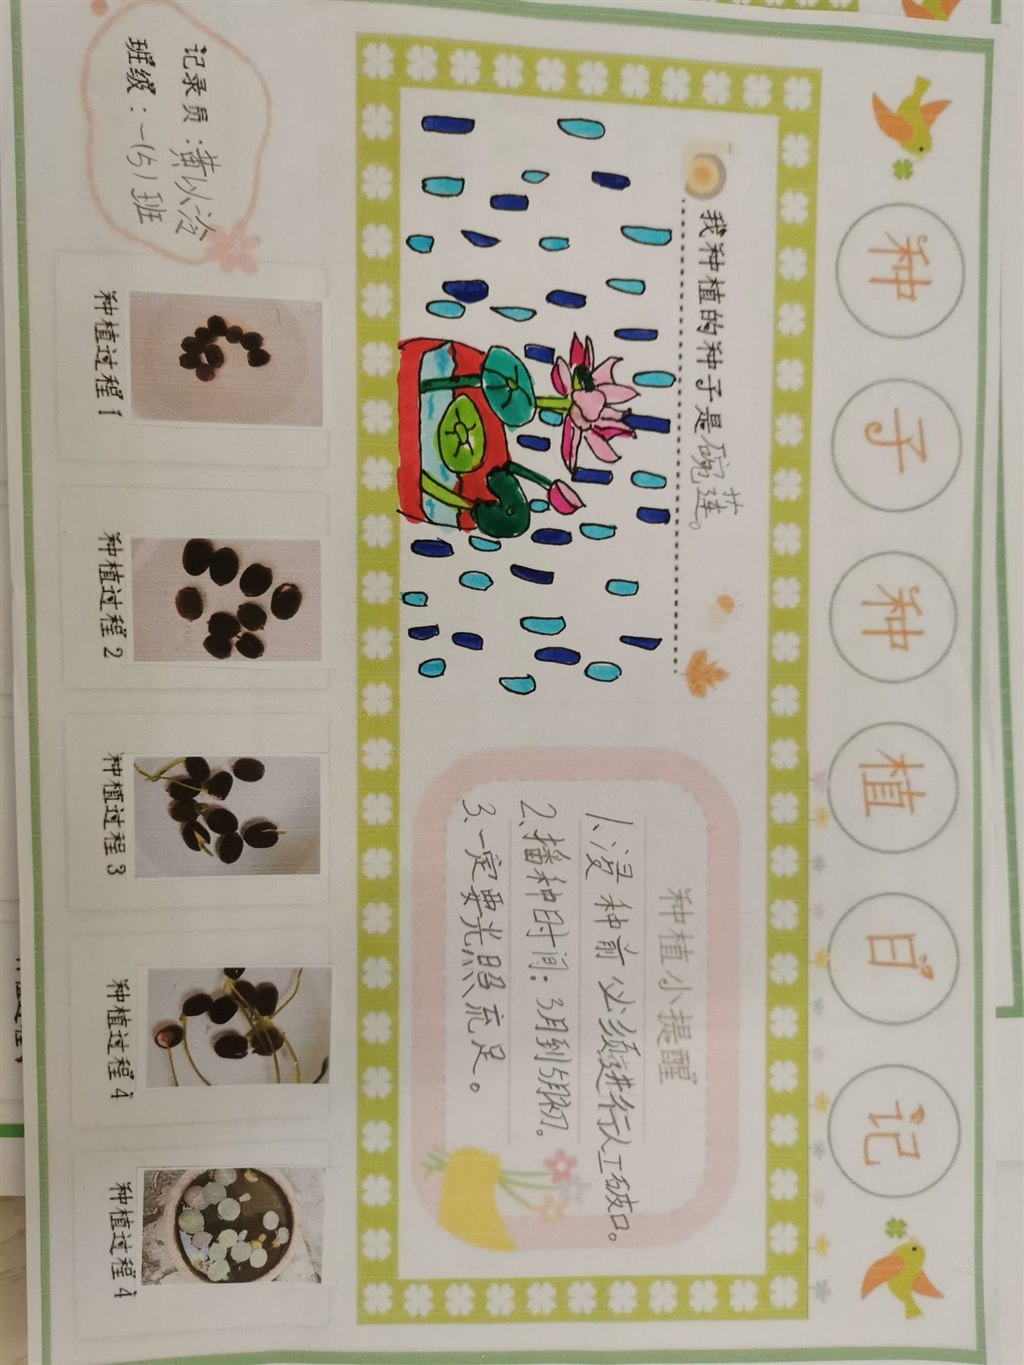 种子种植日记
我种植的种子是碗莲。
种植小提醒
1、浸种前必须进行人工破口。
2、播种时间：3月到5月初。
3、一定要光照充足。
记录员：黄以冾
班级：一(5)班
种植过程1
种植过程2
种植过程3
种植过程4
种植过程4